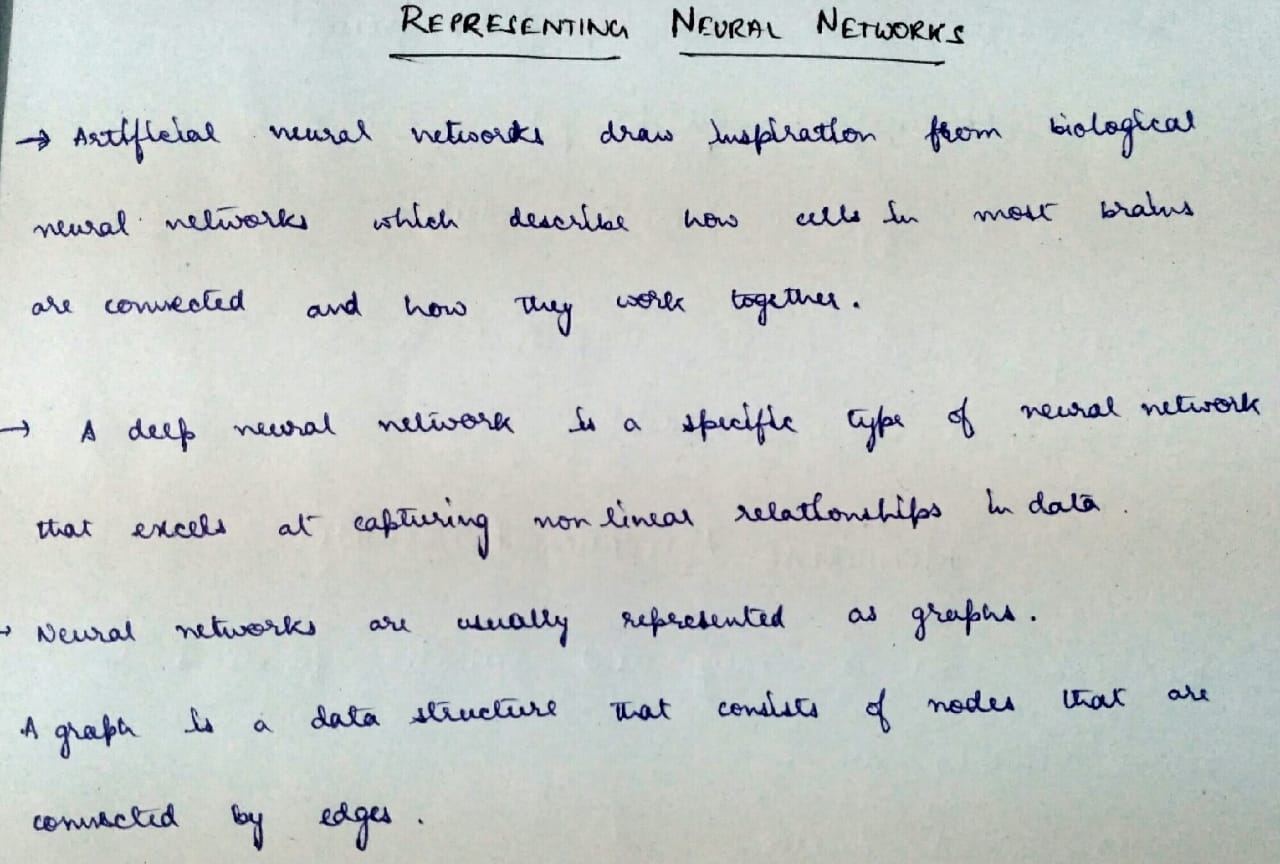 REPRESENTING NEURAL NETWORKS
→ Artificial neural networks draw inspiration from biological
neural networks which describe how cells in most brains
are connected and how they work together.
→ A deep neural network is a specific type of neural network
that excels at capturing non linear relationships in data.
→ Neural networks are usually represented as graphs.
A graph is a data structure that consists of nodes that are
connected by edges.